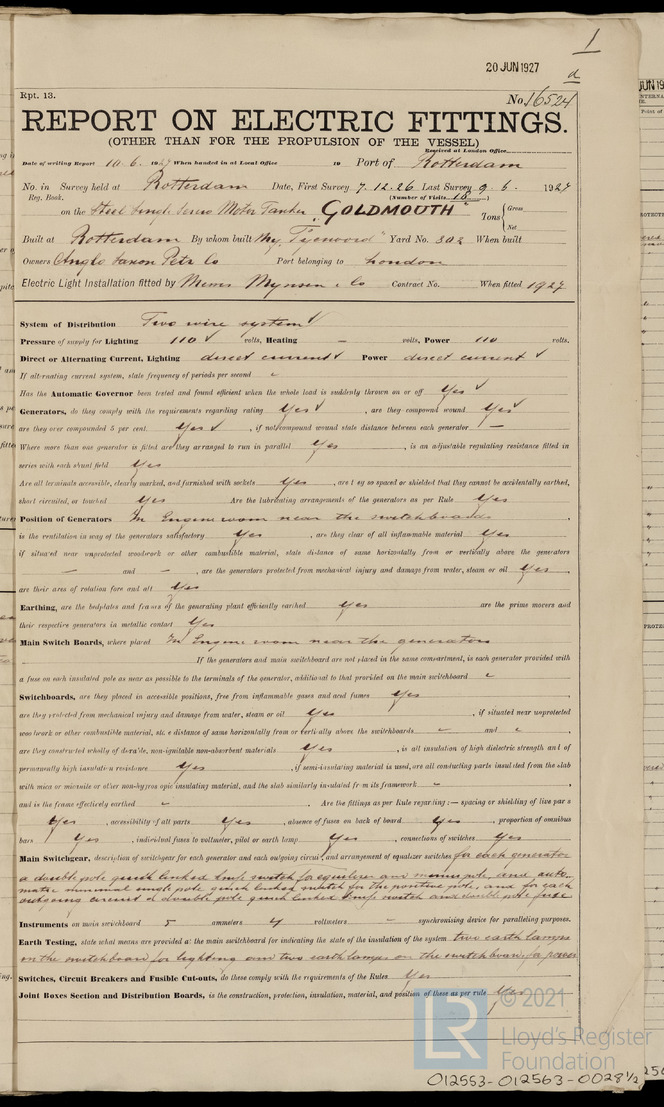 1
20 JUN 1927
d
Rpt. 13.
No. 16524
REPORT ON ELECTRIC FITTINGS.
(OTHER THAN FOR THE PROPULSION OF THE VESSEL)
Received at London Office
Date of writing Report 10.6.1927 When handed in at Local Office 19 Port of Rotterdam
No. in Survey held at Rotterdam Date, First Survey 7.12.26 Last Survey 9.6. 1927
Reg. Book. (Number of Visits 18)
on the Steel Single Screw Motor Tanker "GOLDMOUTH" Tons { Gross Net
Built at Rotterdam By whom built Yard No. 302 When built
Owners Anglo Saxon Petr. Co Port belonging to London
Electric Light Installation fitted by Messrs Mynssen & Co Contract No. When fitted 1927
System of Distribution Two wire system ✓
Pressure of supply for Lighting 110 ✓ volts, Heating – volts, Power 110 volts.
Direct or Alternating Current, Lighting direct current ✓ Power direct current ✓
If alternating current system, state frequency of periods per second
Has the Automatic Governor been tested and found efficient when the whole load is suddenly thrown on or off Yes ✓
Generators, do they comply with the requirements regarding rating Yes ✓, are they compound wound Yes ✓
are they over compounded 5 per cent. Yes ✓, if not compound wound state distance between each generator –
Where more than one generator is fitted are they arranged to run in parallel Yes, is an adjustable regulating resistance fitted in
series with each shunt field Yes
Are all terminals accessible, clearly marked, and furnished with sockets Yes, are they so spaced or shielded that they cannot be accidentally earthed,
short circuited, or touched Yes Are the lubricating arrangements of the generators as per Rule Yes
Position of Generators In Engine room near the switchboards
is the ventilation in way of the generators satisfactory Yes, are they clear of all inflammable material Yes
if situated near unprotected woodwork or other combustible material, state distance of same horizontally from or vertically above the generators
– and –, are the generators protected from mechanical injury and damage from water, steam or oil Yes
are their axes of rotation fore and aft Yes
Earthing, are the bedplates and frames of the generating plant efficiently earthed Yes are the prime movers and
their respective generators in metallic contact Yes
Main Switch Boards, where placed In Engine room near the generators
If the generators and main switchboard are not placed in the same compartment, is each generator provided with
a fuse on each insulated pole as near as possible to the terminals of the generator, additional to that provided on the main switchboard
Switchboards, are they placed in accessible positions, free from inflammable gases and acid fumes Yes
are they protected from mechanical injury and damage from water, steam or oil Yes, if situated near unprotected
woodwork or other combustible material, state distance of same horizontally from or vertically above the switchboards – and –
are they constructed wholly of durable, non-ignitable non-absorbent materials Yes, is all insulation of high dielectric strength and of
permanently high insulation resistance Yes, if semi-insulating material is used, are all conducting parts insulated from the slab
with mica or micanite or other non-hygroscopic insulating material, and the slab similarly insulated from its framework –
and is the frame effectively earthed – . Are the fittings as per Rule regarding:— spacing or shielding of live parts
Yes, accessibility of all parts Yes, absence of fuses on back of board Yes, proportion of omnibus
bars Yes, individual fuses to voltmeter, pilot or earth lamp Yes, connections of switches Yes
Main Switchgear, description of switchgear for each generator and each outgoing circuit, and arrangement of equalizer switches for each generator
a double pole quick linked knife switch for equalizer and minus pole, and auto-
matic single pole quick linked switch for the positive pole, and for each
outgoing circuit a double pole quick linked knife switch and double pole fuse
Instruments on main switchboard 5 ammeters 4 voltmeters – synchronising device for paralleling purposes.
Earth Testing, state what means are provided at the main switchboard for indicating the state of the insulation of the system two earth lamps
on the switchboard for lighting and two earth lamps on the switchboard for power
Switches, Circuit Breakers and Fusible Cut-outs, do these comply with the requirements of the Rules Yes
Joint Boxes Section and Distribution Boards, is the construction, protection, insulation, material, and position of these as per rule Yes
LR
© 2021
Lloyd's Register
Foundation
012553-012563-0028 1/2